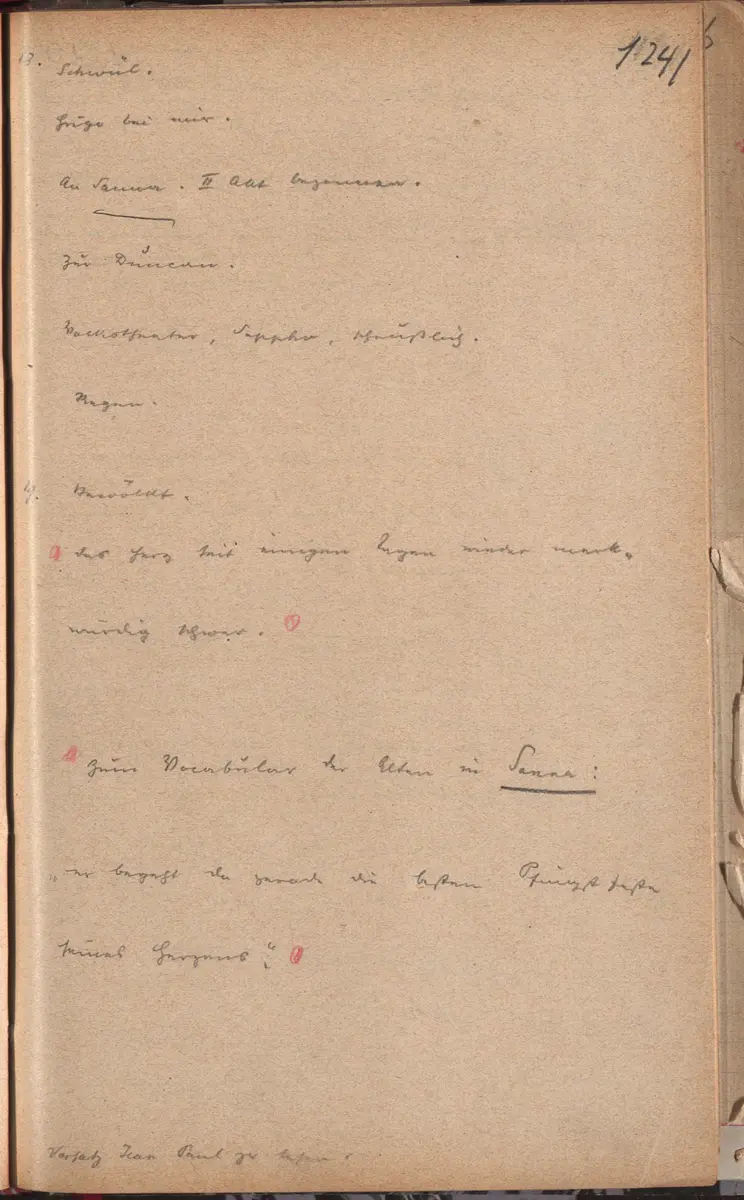 1241
13. Schwül.
Hugo bei mir.
An Sanna. II Akt begonnen.
Zur Duncan.
Volkstheater, Sappho, scheußlich.
Regen.
4. Bewölkt.
das Herz seit einigen Tagen wieder merk-
würdig schwer.
Zum Vocabular der Alten in Sanna:
„er begeht da gerade die besten Pfingstfeste
seines Herzens“.
Vorsatz Jean Paul zu lesen.